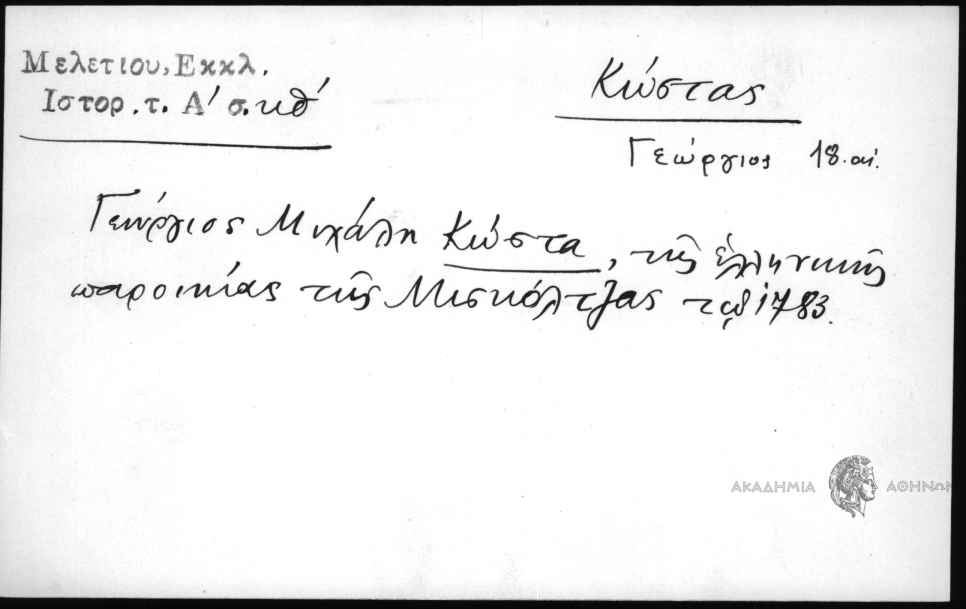 Μελετιου, Εκκλ.
Ιστορ. τ. Α΄ σ. κθ΄
Κώστας
Γεώργιος 18. αἰ.
Γεώργιος Μιχάλη Κώστα, τῆς ἑλληνικῆς
παροικίας τῆς Μισκόλτζας τῷ 1783.
ΑΚΑΔΗΜΙΑ ΑΘΗΝΩΝ